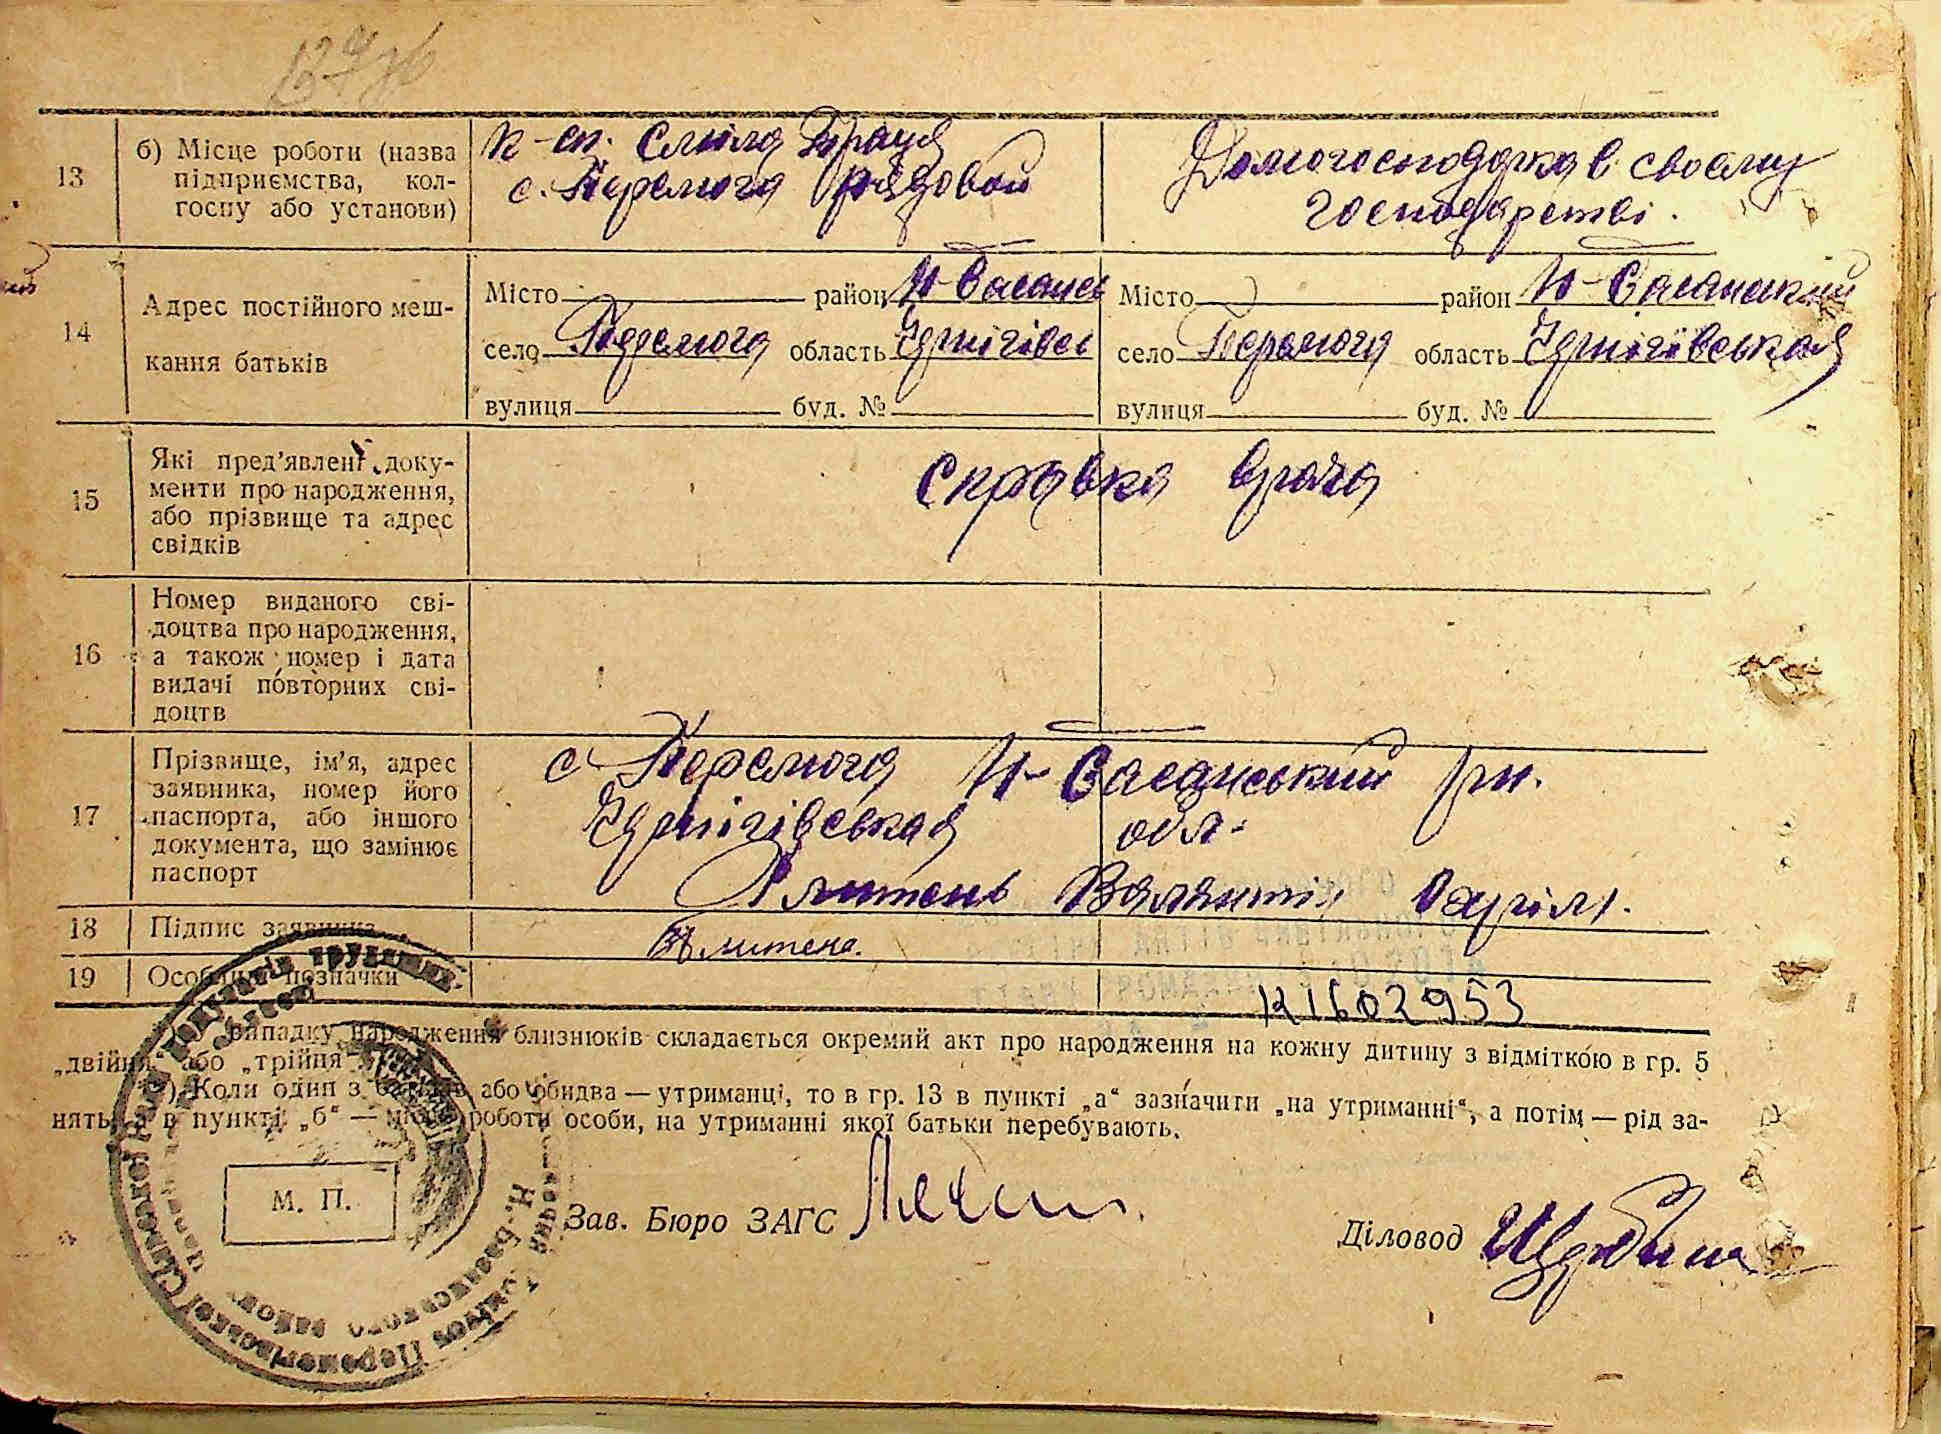 13 б) Місце роботи (назва
підприємства, кол-
госпу або установи)
к-сп. Смила Праця
с. Перемога рядовой
Домогосподарка в своєму
господарстві.
14 Адрес постійного меш-
кання батьків
Місто район Н-Басансь
село Перемога область Чернігівсь
вулиця буд. №
Місто район Н-Басанський
село Перемога область Чернігівськая
вулиця буд. №
15 Які пред'явлені доку-
менти про народження,
або прізвище та адрес
свідків
Справка врача
16 Номер виданого сві-
доцтва про народження,
а також номер і дата
видачі повторних сві-
доцтв
17 Прізвище, ім'я, адрес
заявника, номер його
паспорта, або іншого
документа, що замінює
паспорт
с Перемога Н-Басанський рн.
Чернігівськая обл.
18 Підпис заявника
19 Особливі позначки
К1602953
випадку народження близнюків складається окремий акт про народження на кожну дитину з відміткою в гр. 5
„двійня" або „трійня"
Коли один з батьків або обидва — утриманці, то в гр. 13 в пункті „а" зазначити „на утриманні", а потім — рід за-
нять, а в пункті „б" — місце роботи особи, на утриманні якої батьки перебувають.
М. П.
Зав. Бюро ЗАГС
Діловод